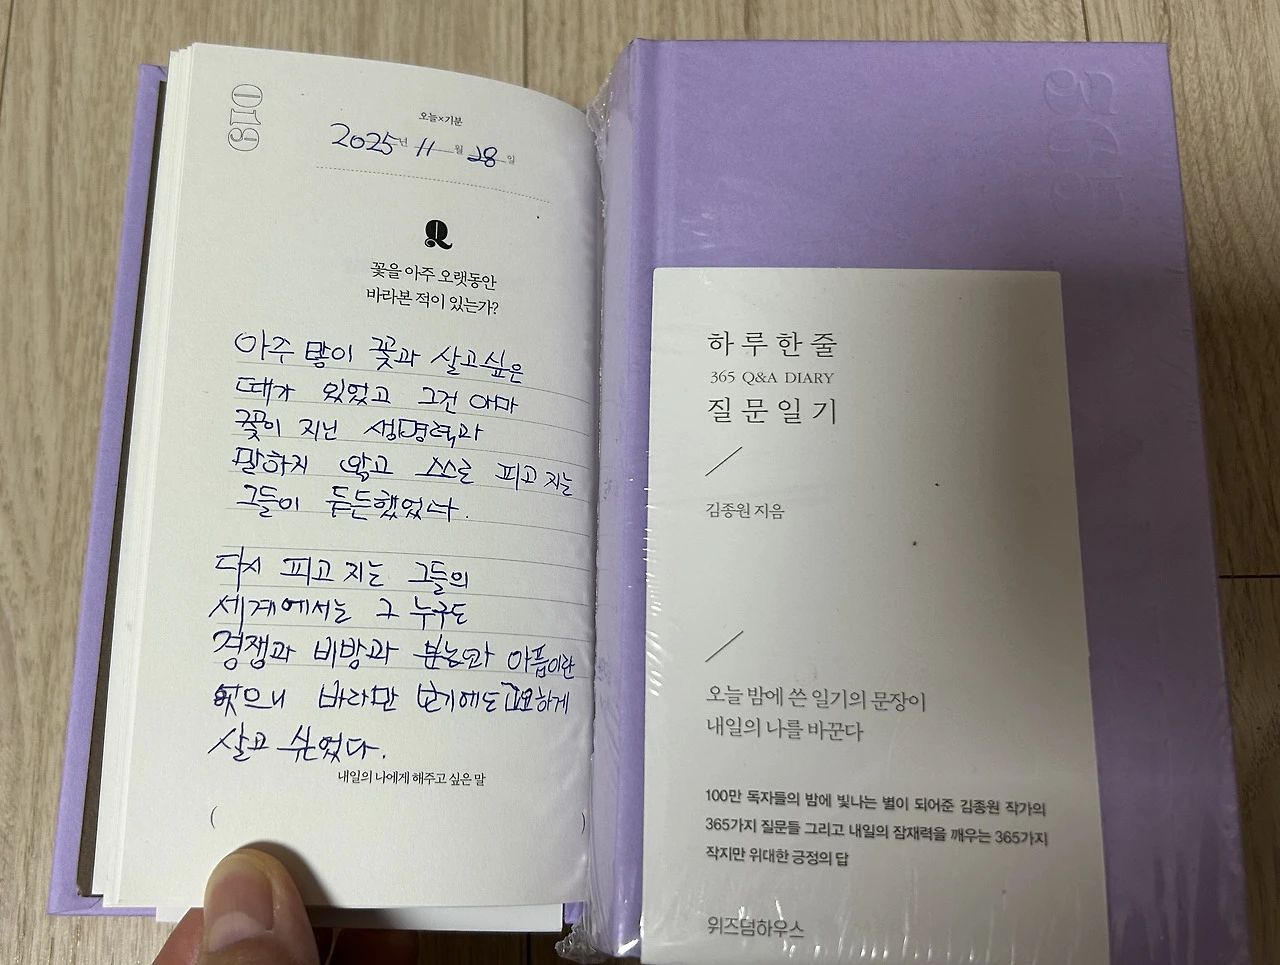 019
오늘×기분
2025년 11월 28일
Q
꽃을 아주 오랫동안
바라본 적이 있는가?
아주 많이 꽃과 살고싶은
때가 있었고 그건 아마
꽃이 지닌 생명력과
말하지 않고 스스로 피고 지는
그들이 든든했었나.
다시 피고 지는 그들의
세계에서는 그 누구도
경쟁과 비방과 분노와 아픔이란
없으니 바라만 보기에도 고요하게
살고 싶었다.
내일의 나에게 해주고 싶은 말
( )
365
하루한줄
365 Q&A DIARY
질문일기
김종원 지음
오늘 밤에 쓴 일기의 문장이
내일의 나를 바꾼다
100만 독자들의 밤에 빛나는 별이 되어준 김종원 작가의
365가지 질문들 그리고 내일의 잠재력을 깨우는 365가지
작지만 위대한 긍정의 답
위즈덤하우스